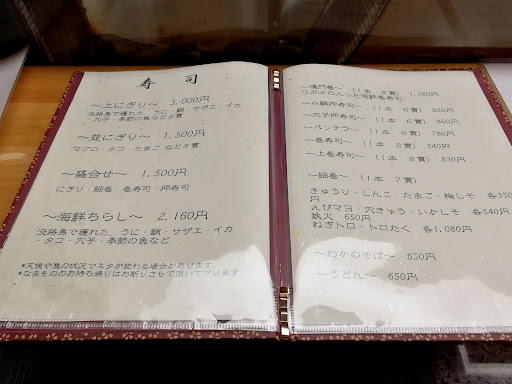 寿司
～上にぎり～ 3,000円
淡路島で獲れた、うに・鯛・サザエ・イカ
・穴子・季節の魚など8貫
～並にぎり～ 1,500円
マグロ・タコ・たまご など8貫
～盛合せ～ 1,500円
にぎり・細巻・巻寿司・押寿司
～海鮮ちらし～ 2,160円
淡路島で獲れた、うに・鯛・サザエ・イカ
・タコ・穴子・季節の魚など
*天候や漁の状況でネタが変わる場合があります。
*なまもののお持ち帰りはお断りさせて頂いております
～鳴門巻～ (1本 8貫) 1,080円
ワカメの入った海鮮巻寿司
～小鯛押寿司～ (1本 6貫) 920円
～穴子押寿司～ (1本 6貫) 860円
～バッテラ～ (1本 6貫) 780円
～巻寿司～ (1本 8貫) 540円
～上巻寿司～ (1本 8貫) 830円
～細巻～ (1本 7貫)
きゅうり・しんこ・たまご・梅しそ 各350円
えびマヨ・穴きゅう・いかしそ 各540円
鉄火 650円
ねぎトロ・トロたく 各1,080円
～わかめそば～ 650円
～うどん～ 650円